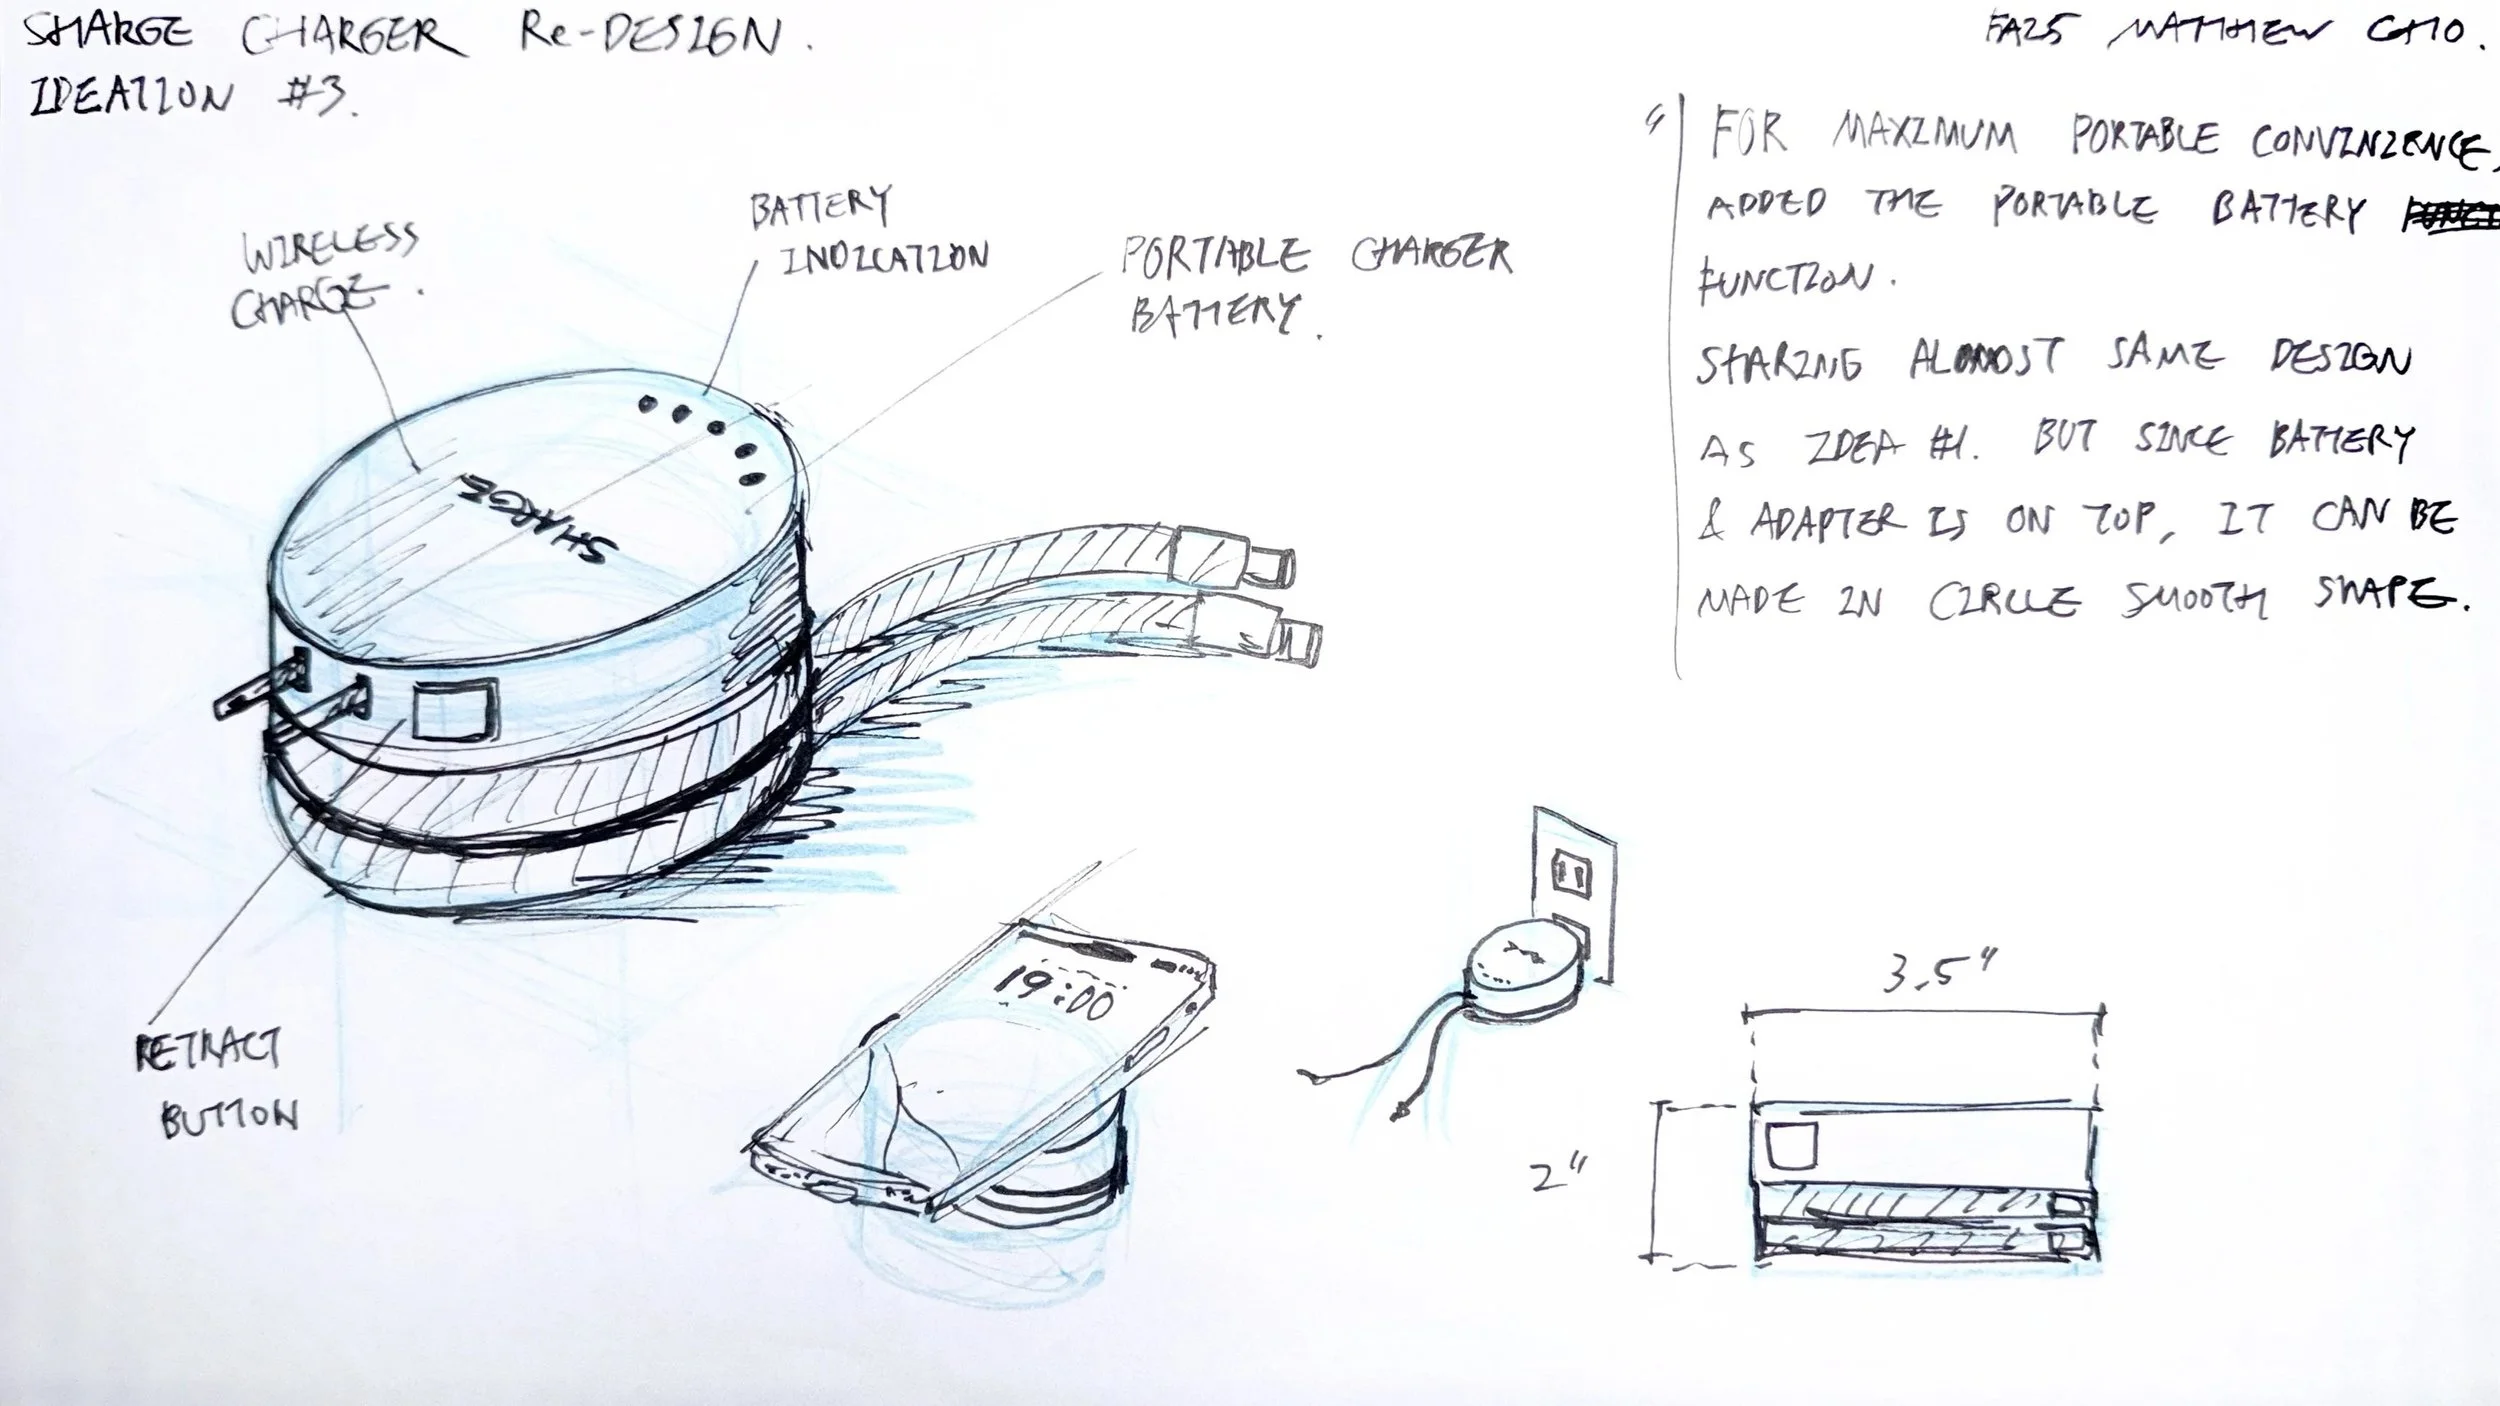 SHARGE CHARGER Re-DESIGN.
IDEATION #3.
FA25 MATTHEW CHO.
" FOR MAXIMUM PORTABLE CONVINIENCE,
ADDED THE PORTABLE BATTERY
FUNCTION.
SHARING ALMOST SAME DESIGN
AS IDEA #1. BUT SINCE BATTERY
& ADAPTER IS ON TOP, IT CAN BE
MADE IN CIRCLE SMOOTH SHAPE.
WIRELESS
CHARGE.
BATTERY
INDICATION
PORTABLE CHARGER
BATTERY.
SHARGE
RETRACT
BUTTON
19:00
3.5"
2"